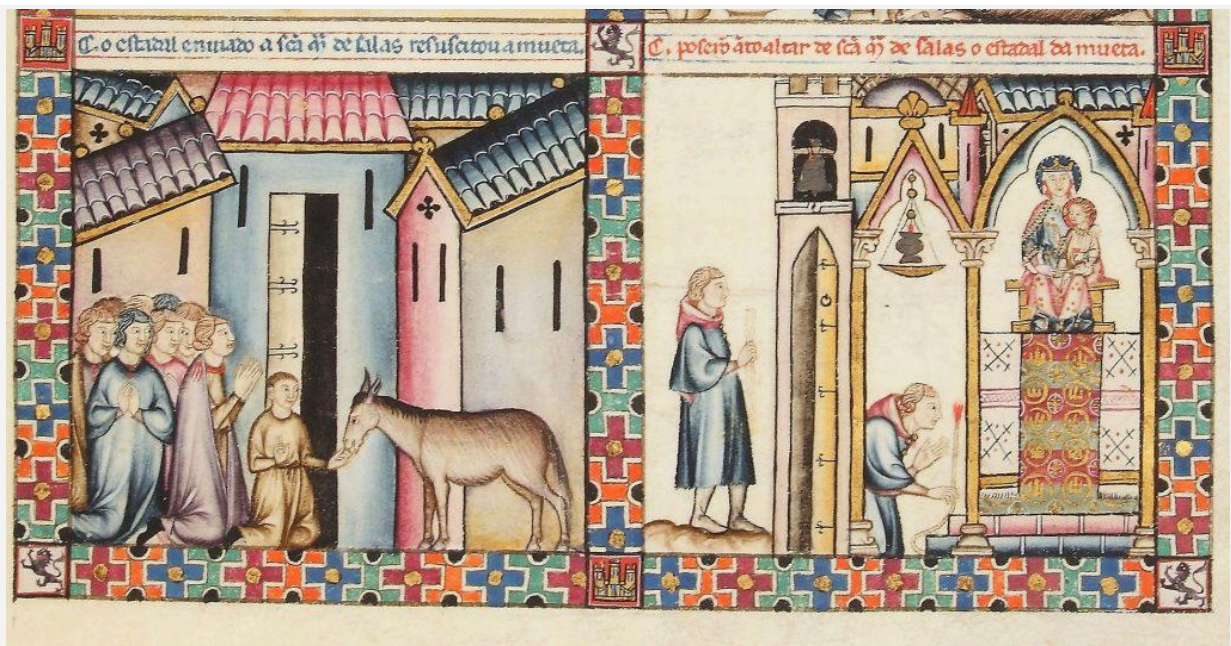 C. o estadal enuiado a sc̃a mͣ de salas resuscitou a mueta.
C. poserõ ãto altar de sc̃a mͣ de salas o estadal da mueta.